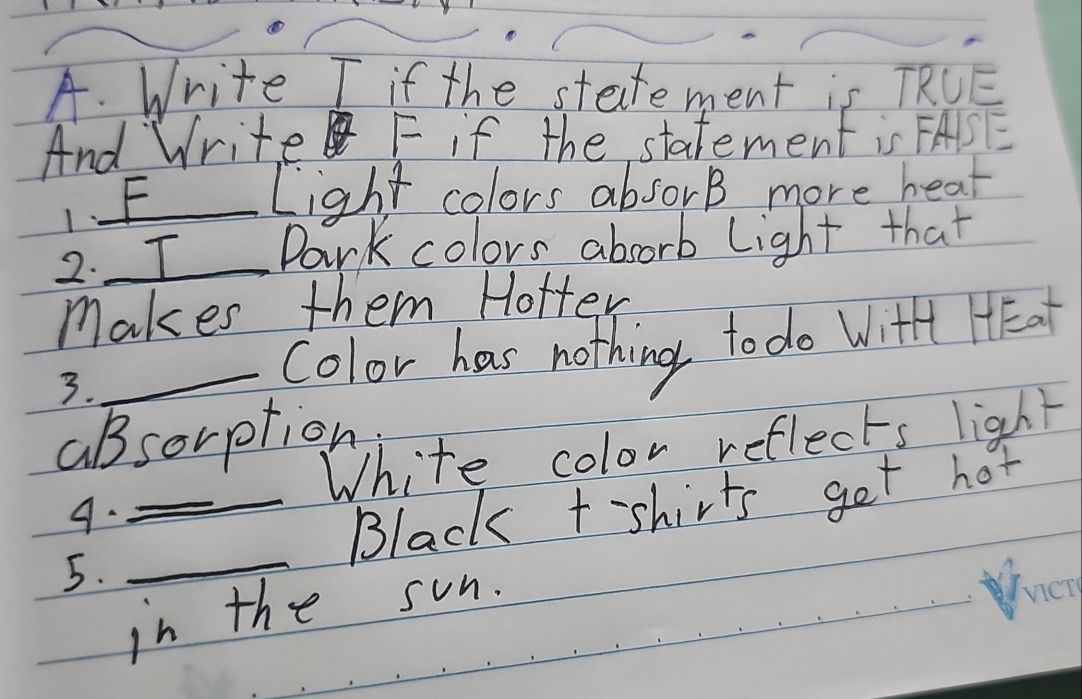 A. Write T if the statement is TRUE
And Write F if the statement is FALSE
1. F Light colors absorB more heat
2. T Dark colors absorb Light that
Makes them Hotter
3. Color has nothing to do WitH HEat
aBsorption.
4. White color reflects light
5. Black t-shirts get hot
in the sun.
VICTO